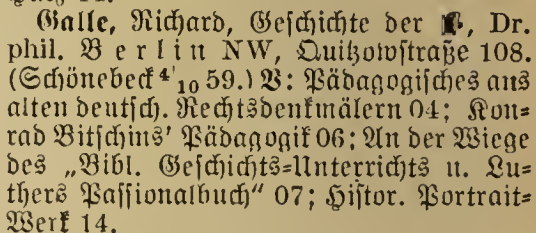 Galle, Richard, Geschichte der P., Dr.
phil. Berlin NW, Quitzowstraße 108.
(Schönebeck 4/10 59.) V: Pädagogisches aus
alten deutsch. Rechtsdenkmälern 04; Kon=
rad Bitschins' Pädagogik 06; An der Wiege
des „Bibl. Geschichts=Unterrichts u. Lu=
thers Passionalbuch" 07; Histor. Portrait=
Werk 14.